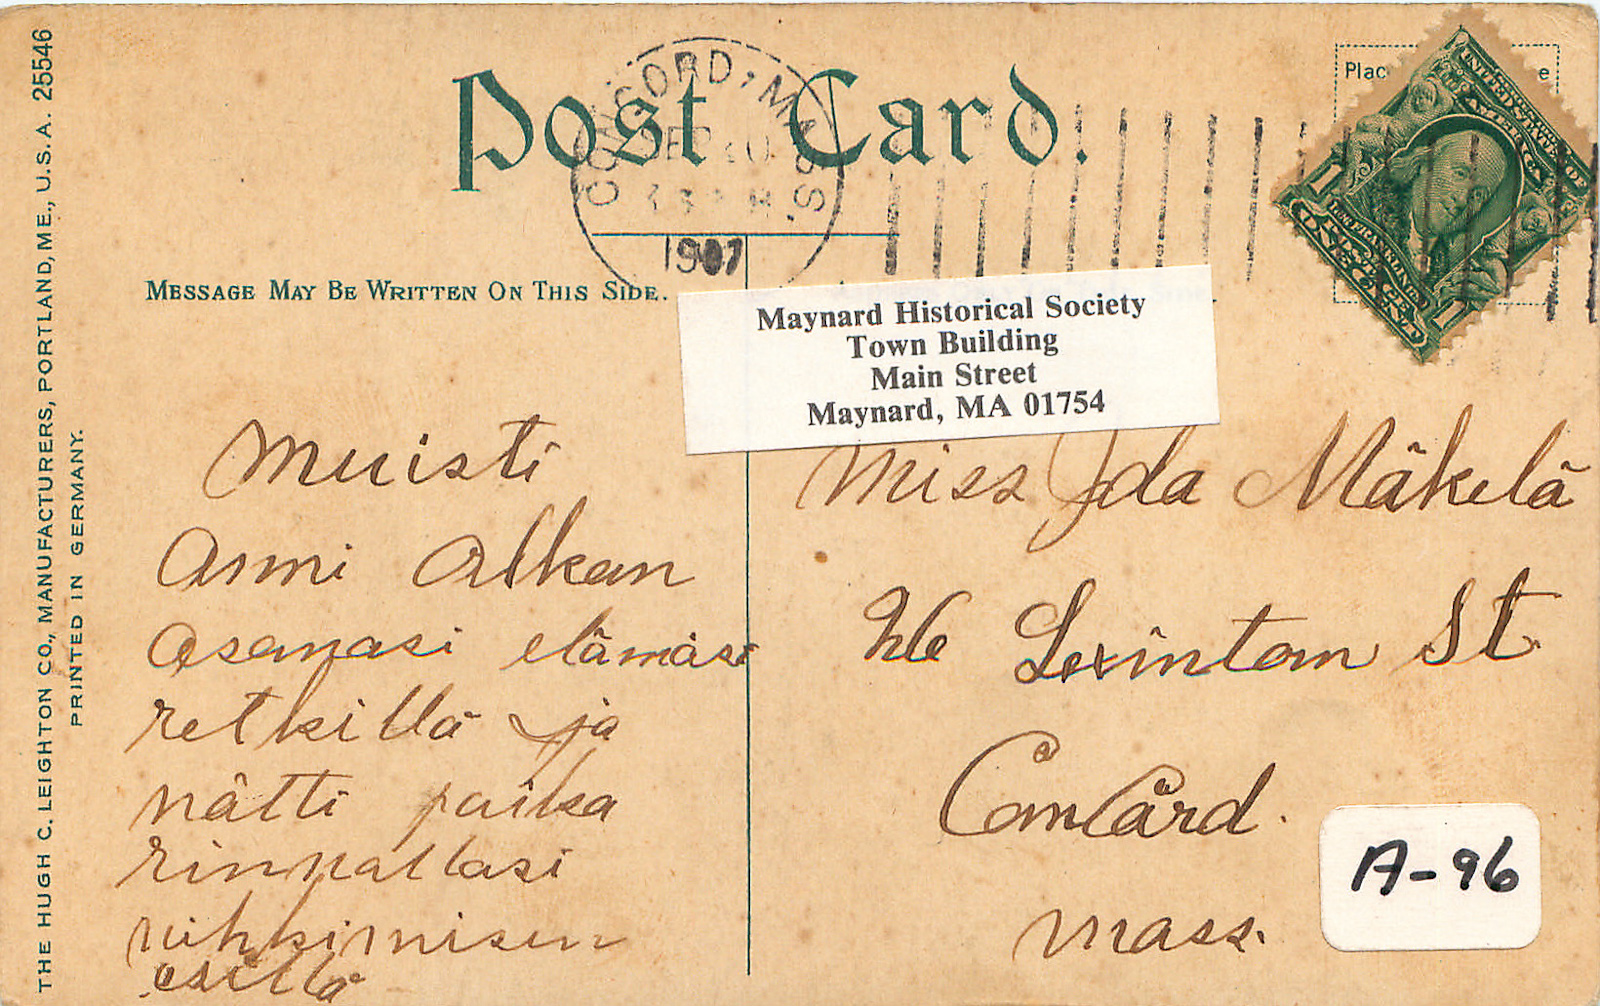 THE HUGH C. LEIGHTON CO., MANUFACTURERS, PORTLAND, ME., U.S.A. 25546
PRINTED IN GERMANY.
Post Card.
CONCORD, MASS.
SEP
1907
Plac e
UNITED STATES OF AMERICA
1 1
ONE CENT
MESSAGE MAY BE WRITTEN ON THIS SIDE.
Maynard Historical Society
Town Building
Main Street
Maynard, MA 01754
Muisti
Asmi Alkan
asenasi elämäsi
retkillä ja
nätti paika
rinnallasi
vihkimisen
esillä
Miss Ida Mäkelä
26 Lexintom St
Concård.
Mass.
A-96